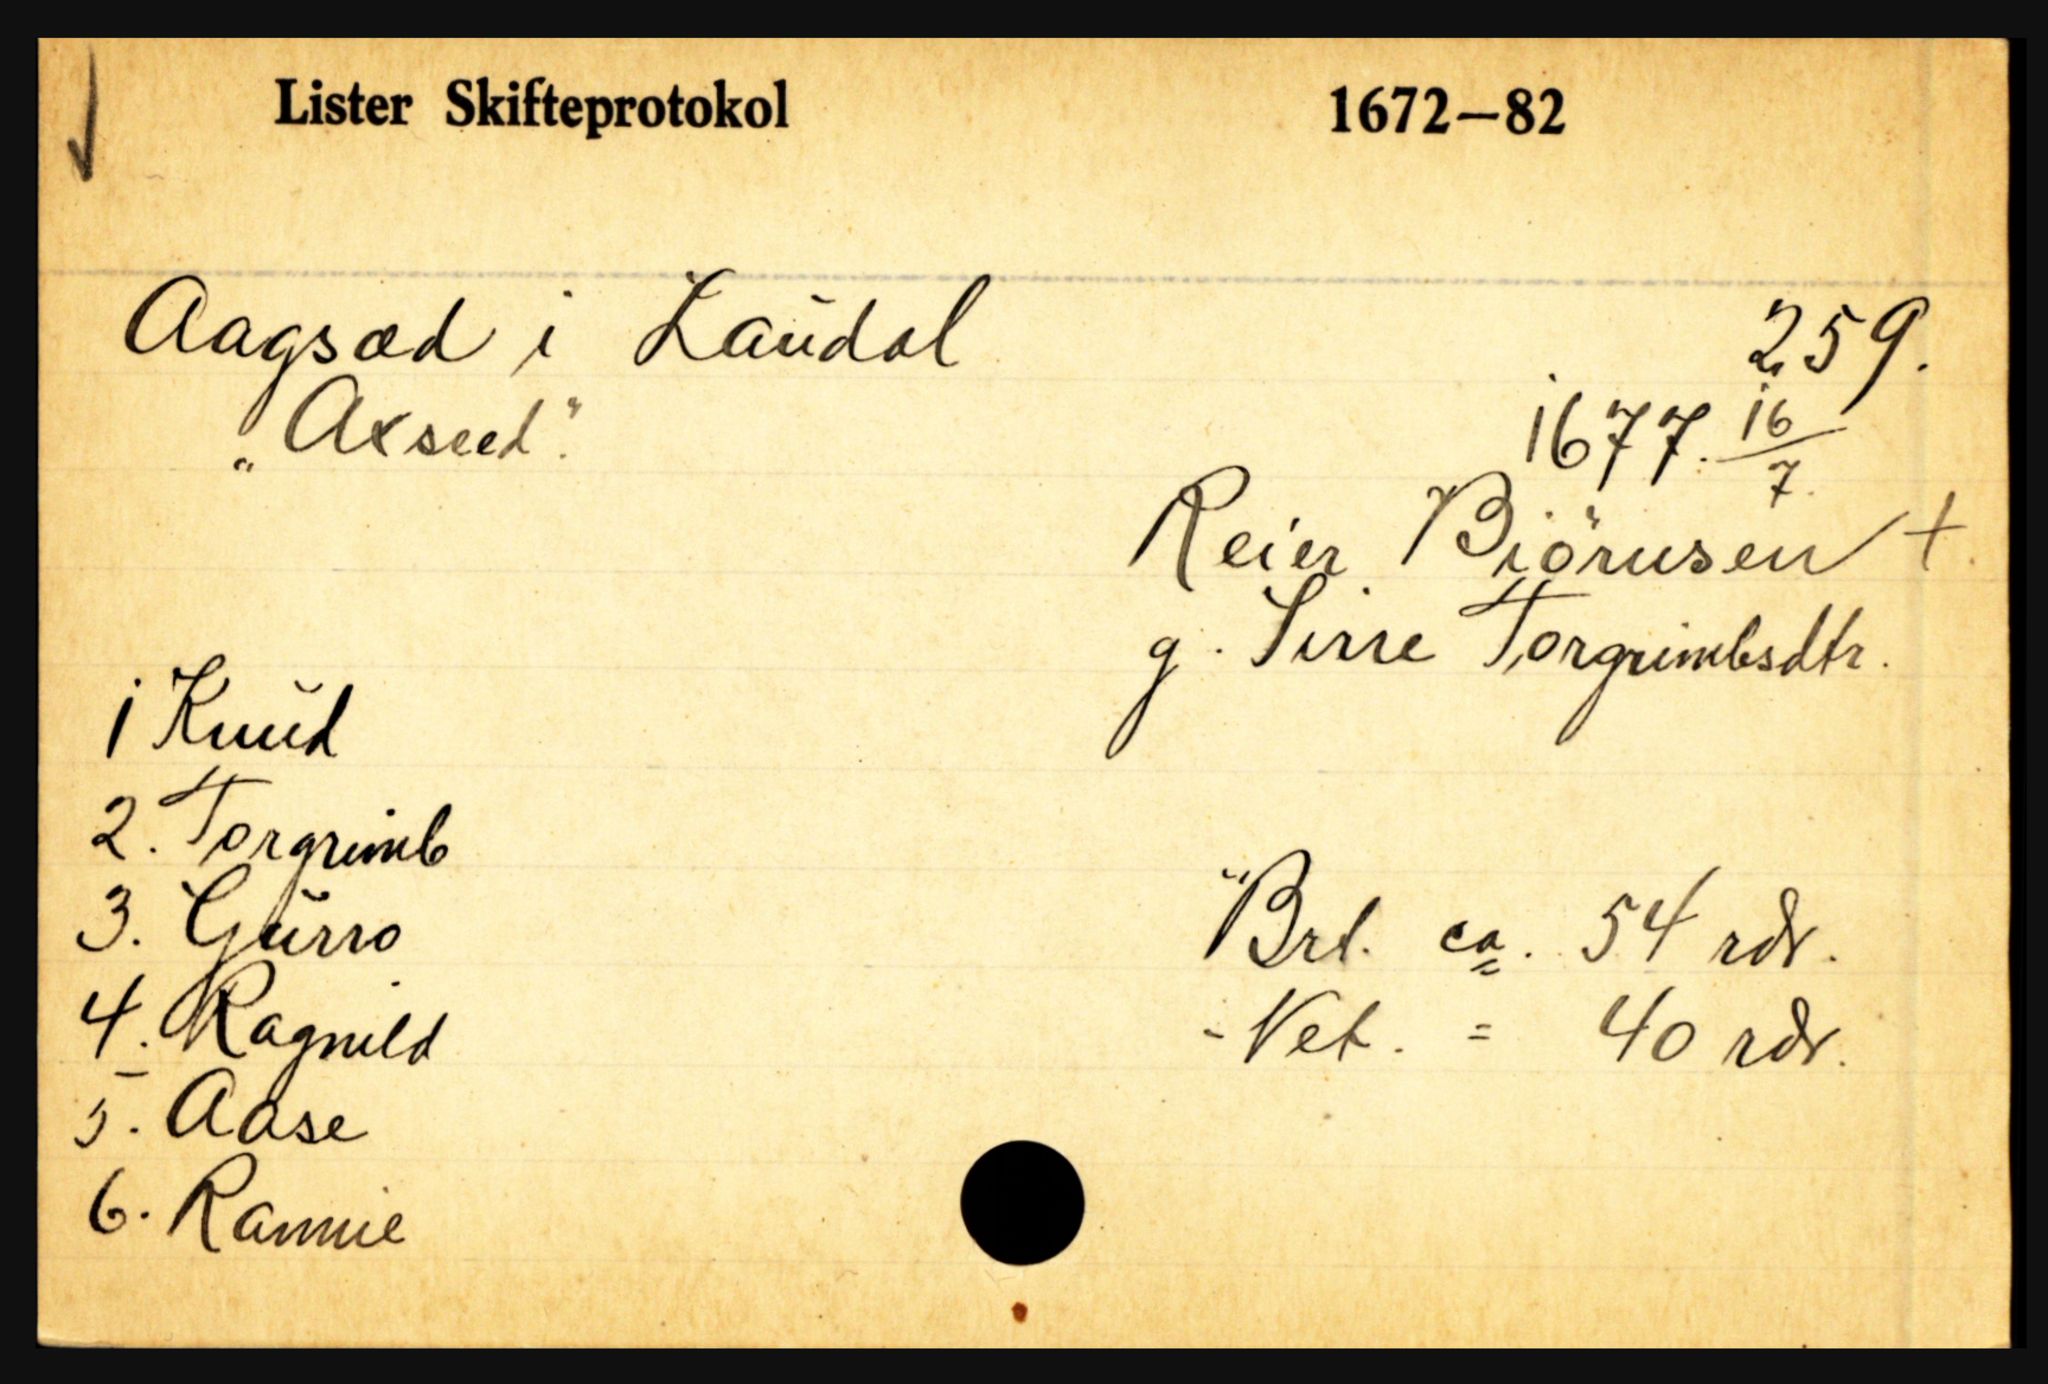 Lister Skifteprotokol 1672–82
Aagsæd i Laudal 259.
"Axseed". 1677. 16/7.
Reier Biörnsen +
g. Sirre Torgrimbsdtr.
1 Knud
2. Torgrimb
3. Gurro
4. Ragnild
5. Aase
6. Rannie
Brt. ca. 54 rdr.
- Net. = 40 rdr.